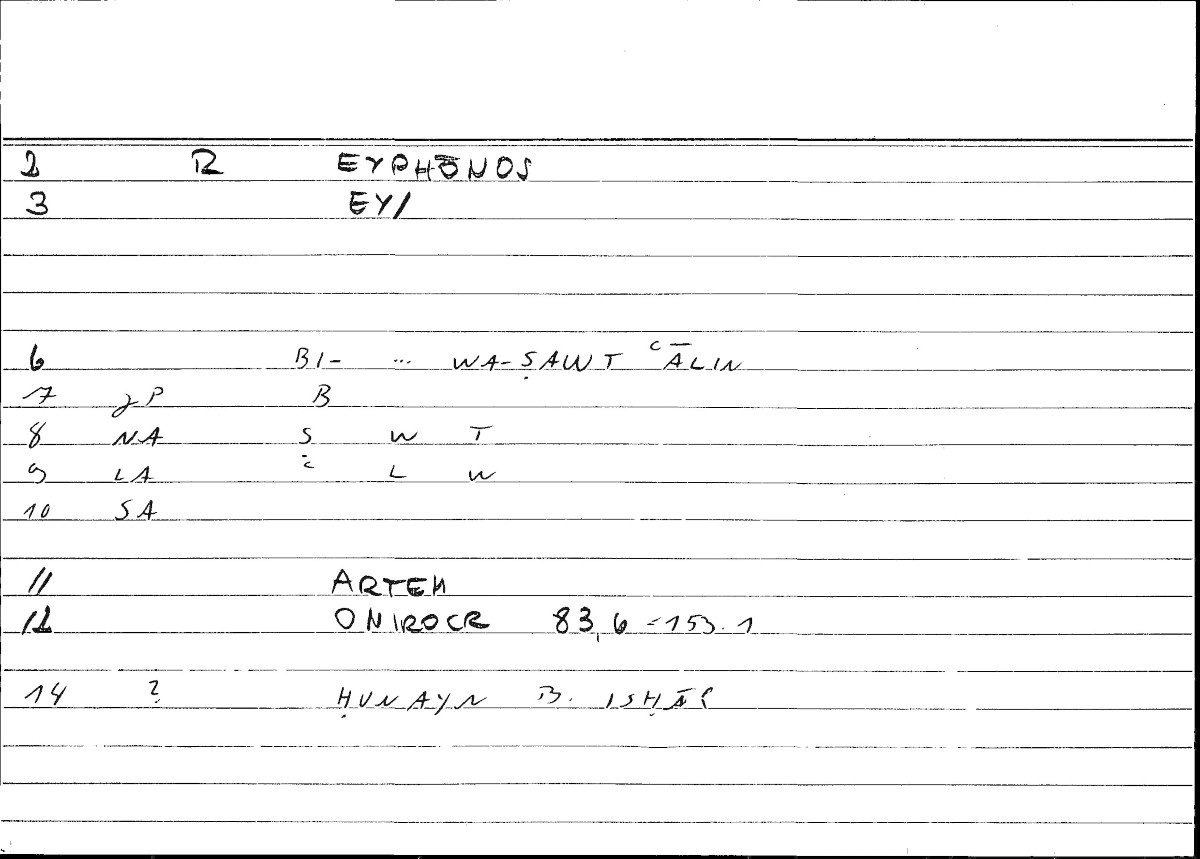 2 R EYPHŌNOS
3 EY/
6 BI- ... WA-ṢAWT ʿĀLIN
7 JP B
8 NA Ṣ W T
9 LA ʿ L W
10 SA
11 ARTEM
12 ONIROCR 83,6 = 153.1
14 ? ḤUNAYN B. ISḤĀ